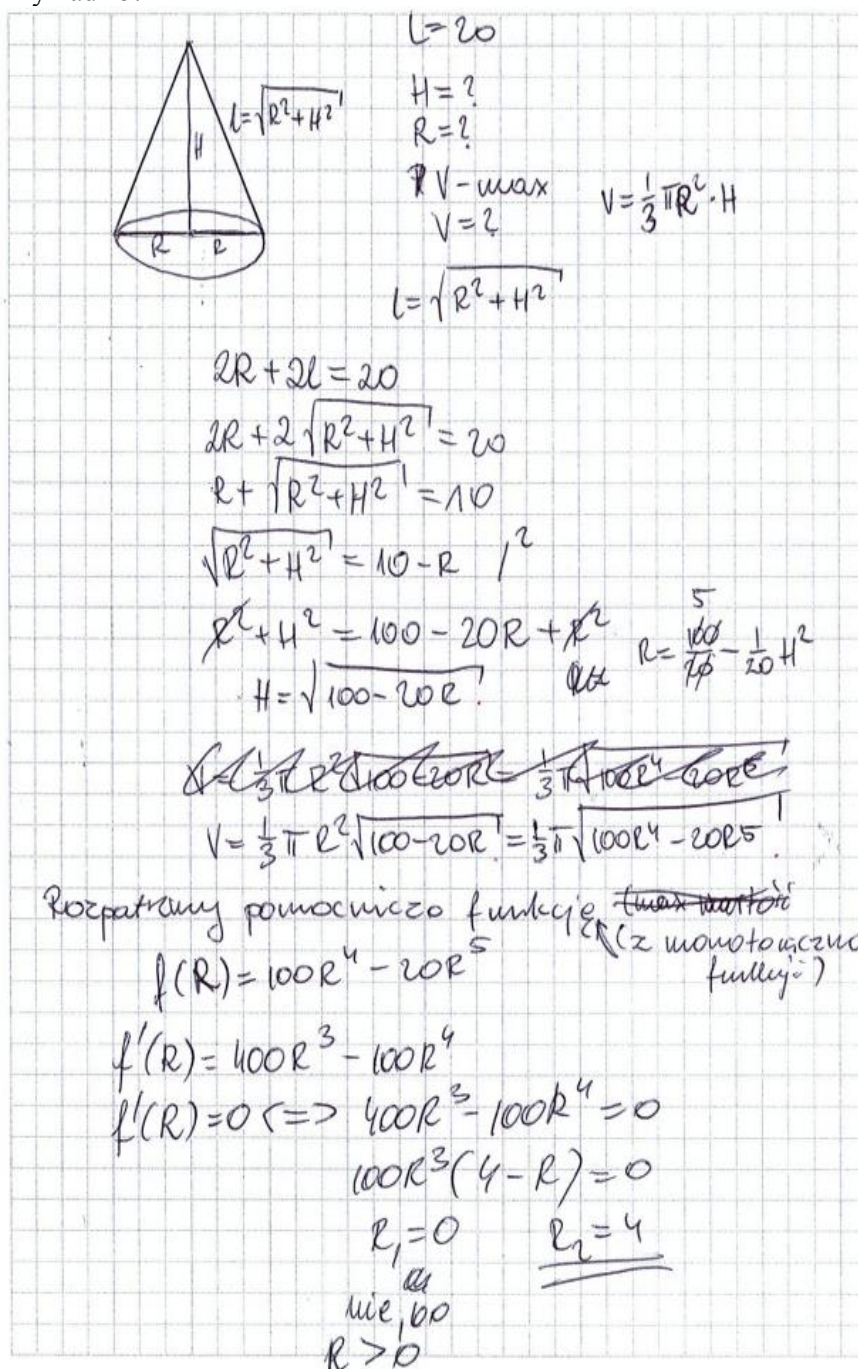 L=20
l=√(R²+H²)
H
H=?
R=?
V-max
V=?
V=⅓πR²·H
R R
l=√(R²+H²)
2R+2l=20
2R+2√(R²+H²)=20
R+√(R²+H²)=10
√(R²+H²)=10-R /²
R²+H²=100-20R+R²
R=100/20-1/20H²
5
H=√(100-20R)
V=⅓πR²√(100-20R)=⅓π√(100R⁴-20R⁵)
V=⅓πR²√(100-20R)=⅓π√(100R⁴-20R⁵)
Rozpatrzmy pomocniczo funkcję
(z
f(R)=100R⁴-20R⁵
f'(R)=400R³-100R⁴
f'(R)=0<=>400R³-100R⁴=0
100R³(4-R)=0
R₁=0 R₂=4
nie, bo
R>0